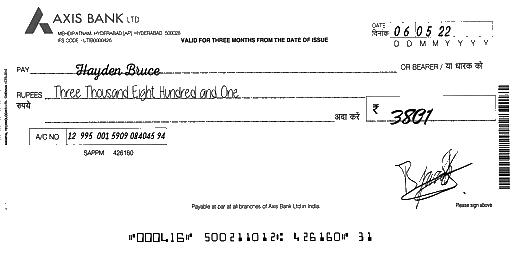 AXIS BANK LTD
MEHDIPATNAM, HYDERABAD [AP] HYDERABAD 500028
IFS CODE - UTIB0000426
VALID FOR THREE MONTHS FROM THE DATE OF ISSUE
DATE
दिनांक 06 05 22
D D M M Y Y Y Y
PAY Hayden Bruce OR BEARER / या धारक को
RUPEES Three Thousand Eight Hundred and One
रुपये अदा करें ₹ 3801
A/C NO 12 995 001 5909 084045 94
SAPPM 426160
Payable at par at all branches of Axis Bank Ltd in India.
Please sign above
⑈000416⑈ 500211012⑆ 426160⑈ 31